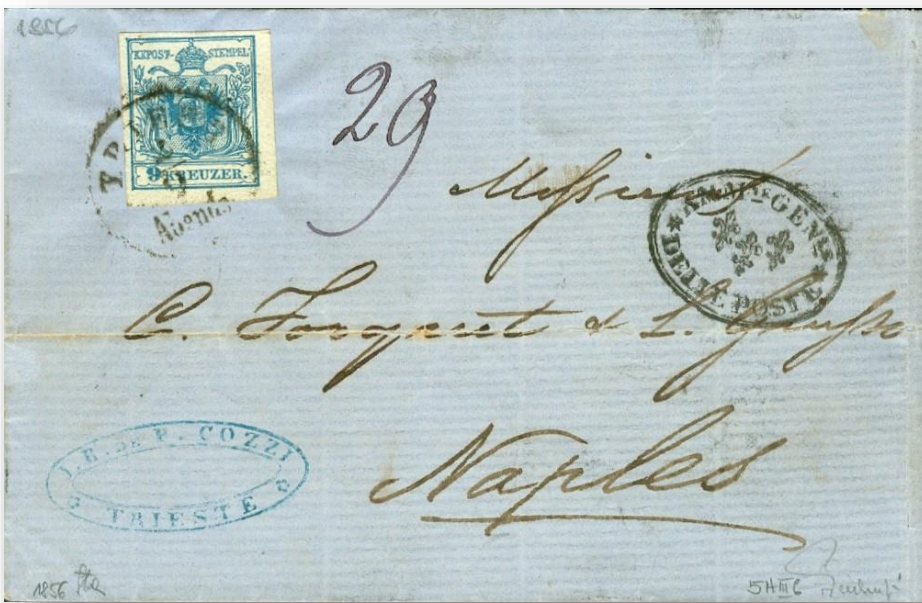 1856
KKPOST-STEMPEL
9 KREUZER.
TRIEST
Abends
29
Messieurs
AMM. GEN.
DELLE POSTE
C. Forquet & L. Giusso
Naples
J.B. DE P. COZZI
TRIESTE
1856
5HIII6